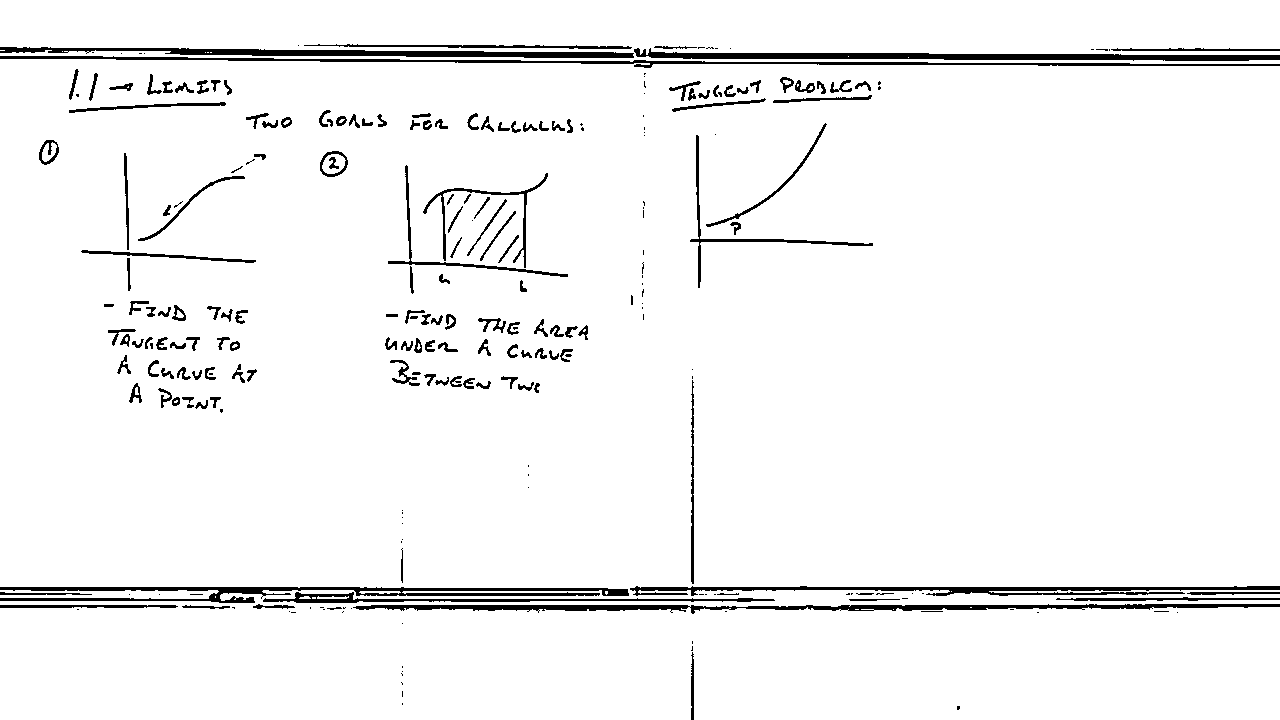 1.1 → LIMITS
TWO GOALS FOR CALCULUS:
①
- FIND THE
TANGENT TO
A CURVE AT
A POINT.
②
a b
- FIND THE AREA
UNDER A CURVE
BETWEEN TWO
TANGENT PROBLEM:
P